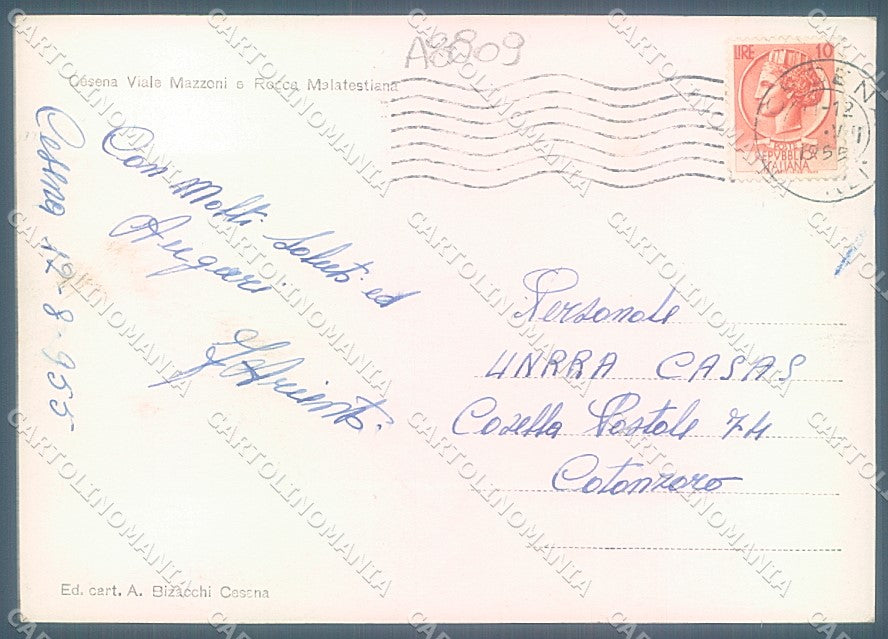 A8809
Cesena Viale Mazzoni e Rocca Malatestiana
LIRE 10
POSTE
REPVBBLICA
ITALIANA
-12
1955
Cesena 12-8-955
Con Molti Saluti ed
Auguri
Personale
UNRRA CASAS
Casella Postale 74
Catanzaro
Ed. cart. A. Bizacchi Cesena
CARTOLINOMANIA